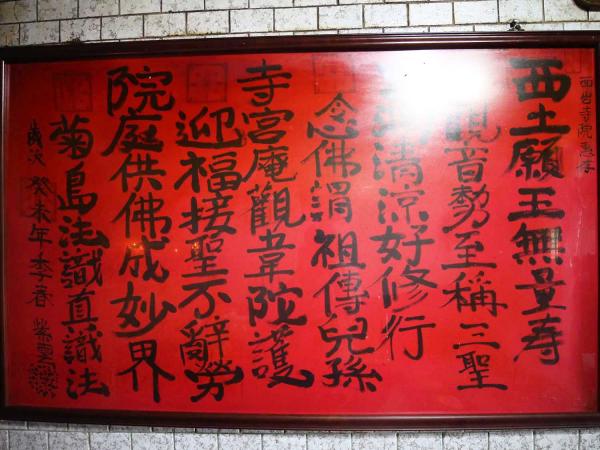 西岩寺院惠存
西土願王無量寿
觀音勢至稱三聖
清涼好修行
念佛謂祖傳兒孫
寺宮庵觀韋陀護
迎福接聖不辭勞
院庭供佛成妙界
菊島法識真識法
歲次癸未年季春 紫雲